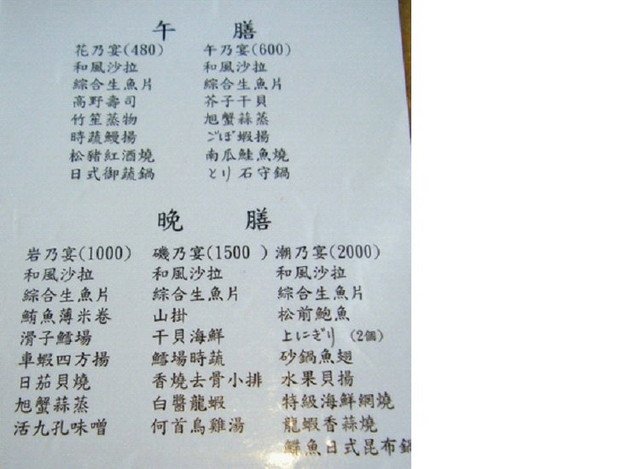 午膳
花乃宴(480)
和風沙拉
綜合生魚片
高野壽司
竹笙蒸物
時蔬鰻揚
松豬紅酒燒
日式御蔬鍋
午乃宴(600)
和風沙拉
綜合生魚片
芥子干貝
旭蟹蒜蒸
ごぼ蝦揚
南瓜鮭魚燒
とり石守鍋
晚膳
岩乃宴(1000)
和風沙拉
綜合生魚片
鮪魚薄米卷
滑子鱈場
車蝦四方揚
日茄貝燒
旭蟹蒜蒸
活九孔味噌
磯乃宴(1500 )
和風沙拉
綜合生魚片
山掛
干貝海鮮
鱈場時蔬
香燒去骨小排
白醬龍蝦
何首烏雞湯
潮乃宴(2000)
和風沙拉
綜合生魚片
松前鮑魚
上にぎり (2個)
砂鍋魚翅
水果貝揚
特級海鮮網燒
龍蝦香蒜燒
鮮魚日式昆布鍋